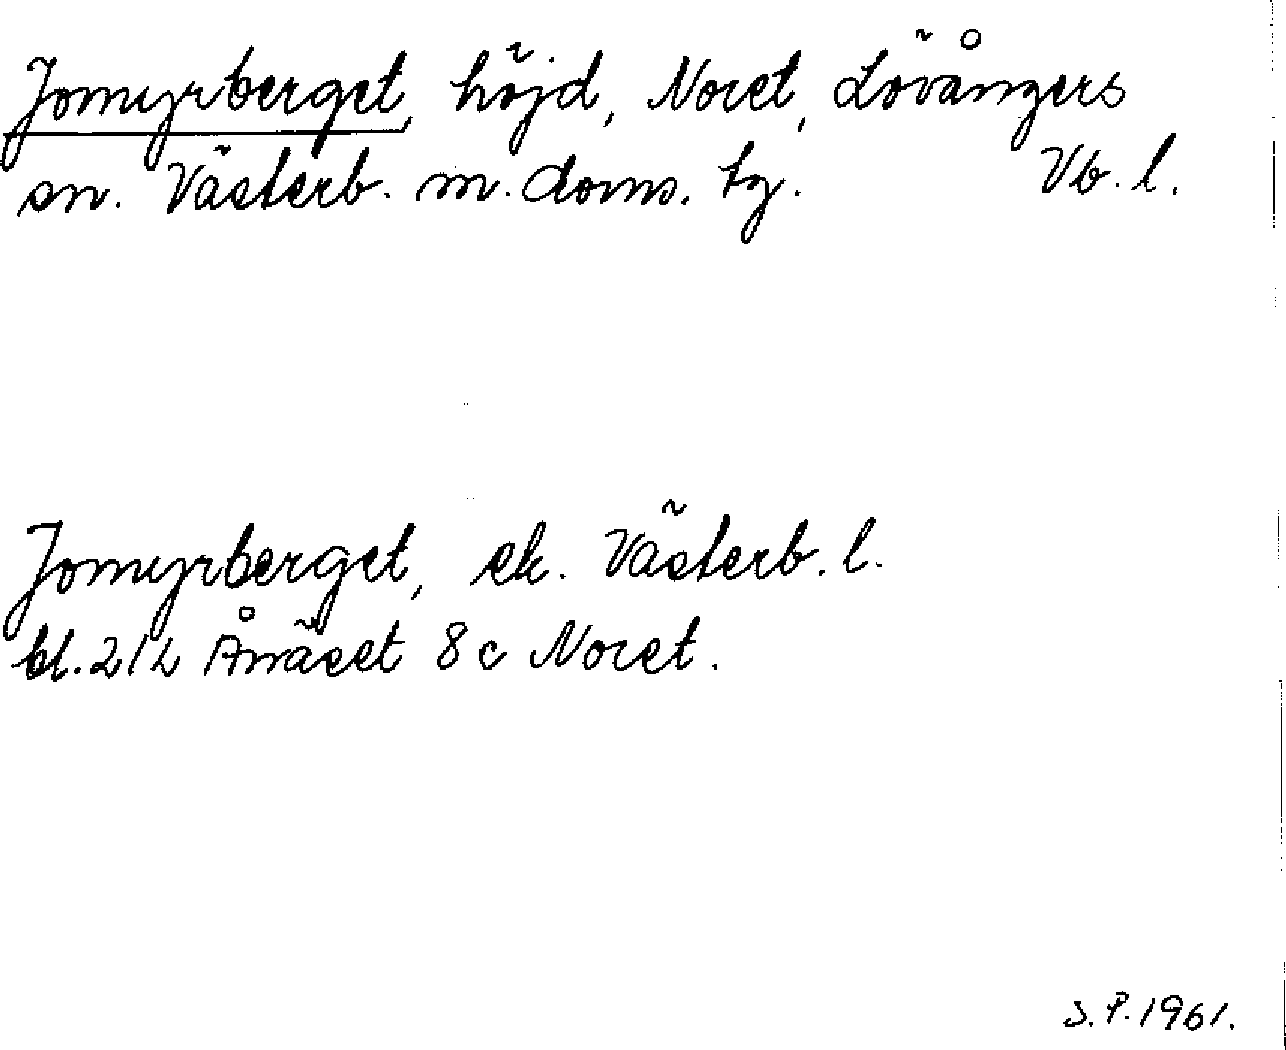 Jomyrberget, höjd, Noret, Lövångers
sn. Västerb. m. doms. tg. Vb. l.
Jomyrberget, ek. Västerb. l.
bl. 212 Ånäset 8 c Noret.
S.P. 1961.